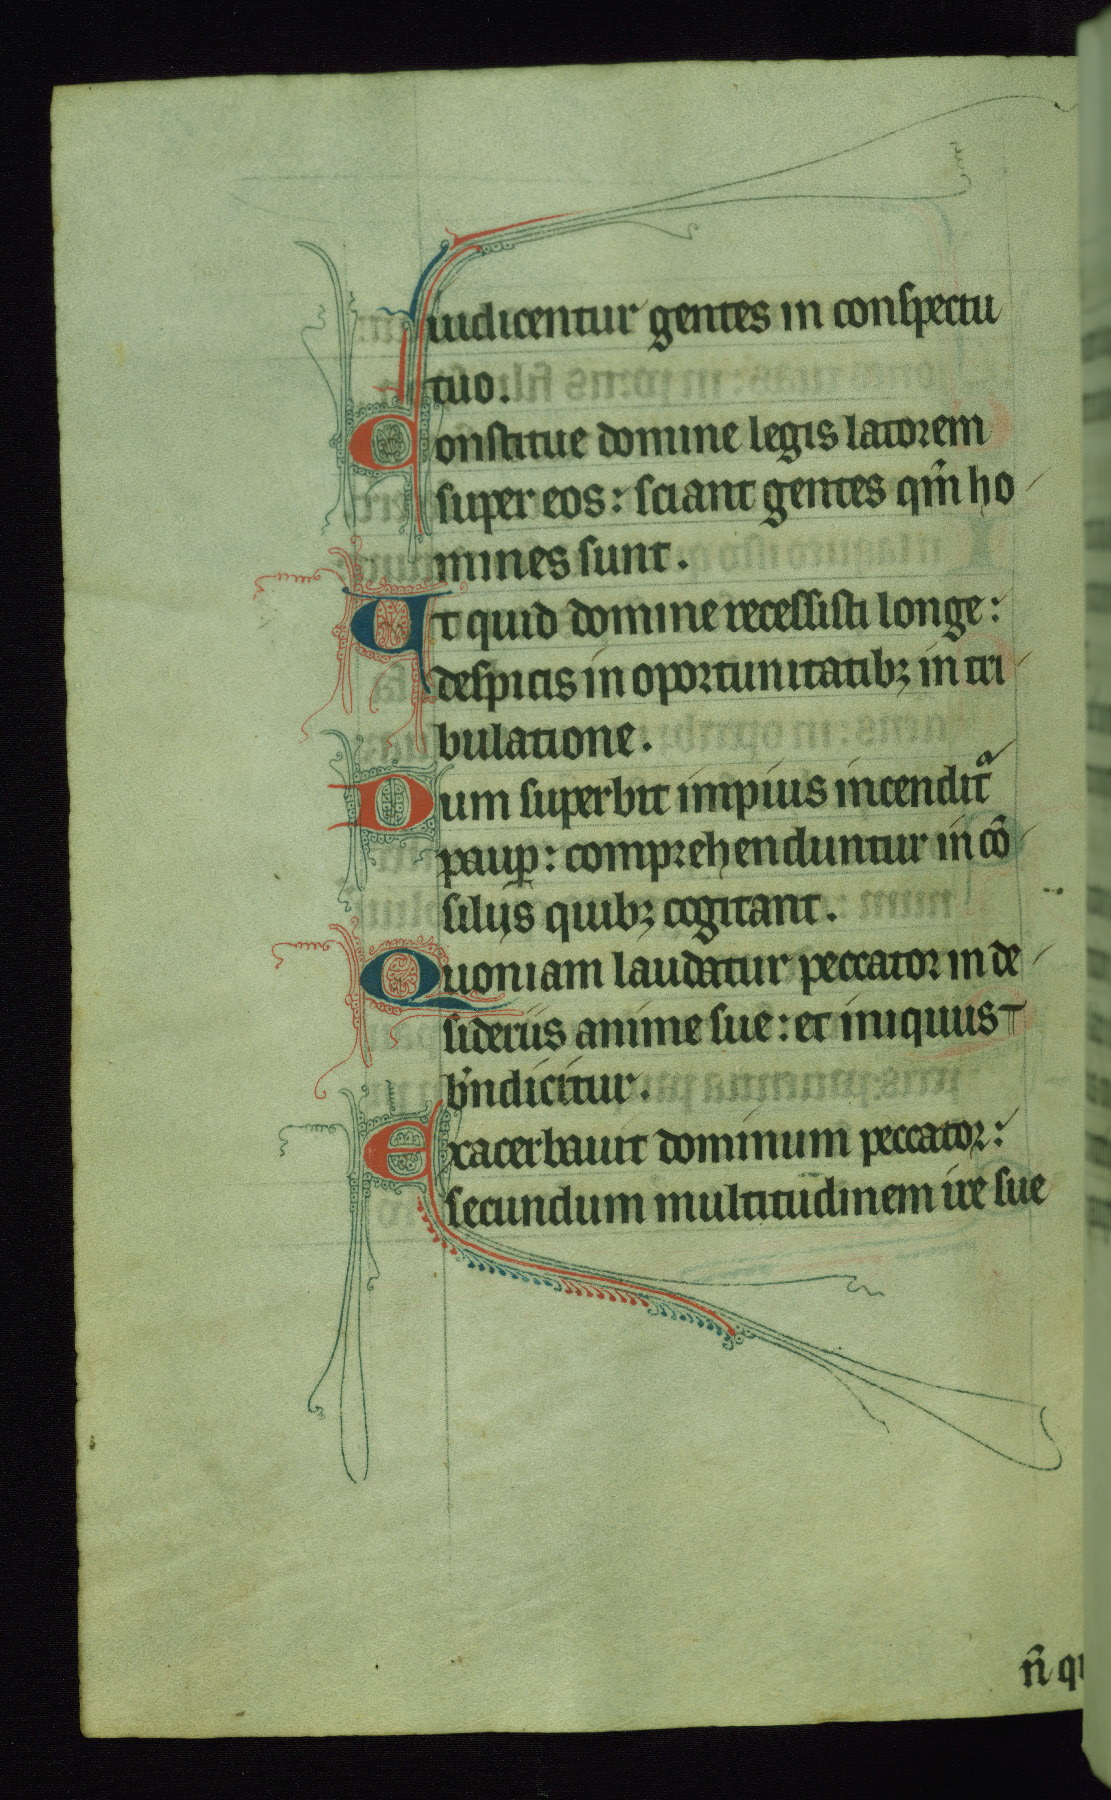 iudicentur gentes in conspectu
tuo.
Constitue domine legis latorem
super eos: sciant gentes qm̄ ho
mines sunt.
Ut quid domine recessisti longe:
despicis in oportunitatibꝫ in tri
bulatione.
Dum superbit impius incenditᷓ
paup̲: comprehenduntur in cō
silijs quibꝫ cogitant.
Quoniam laudatur peccator in de
sideriis anime sue: et iniquus
bn̄dicitur.
Exacerbauit dominum peccator:
secundum multitudinem ire sue
n̄ qu